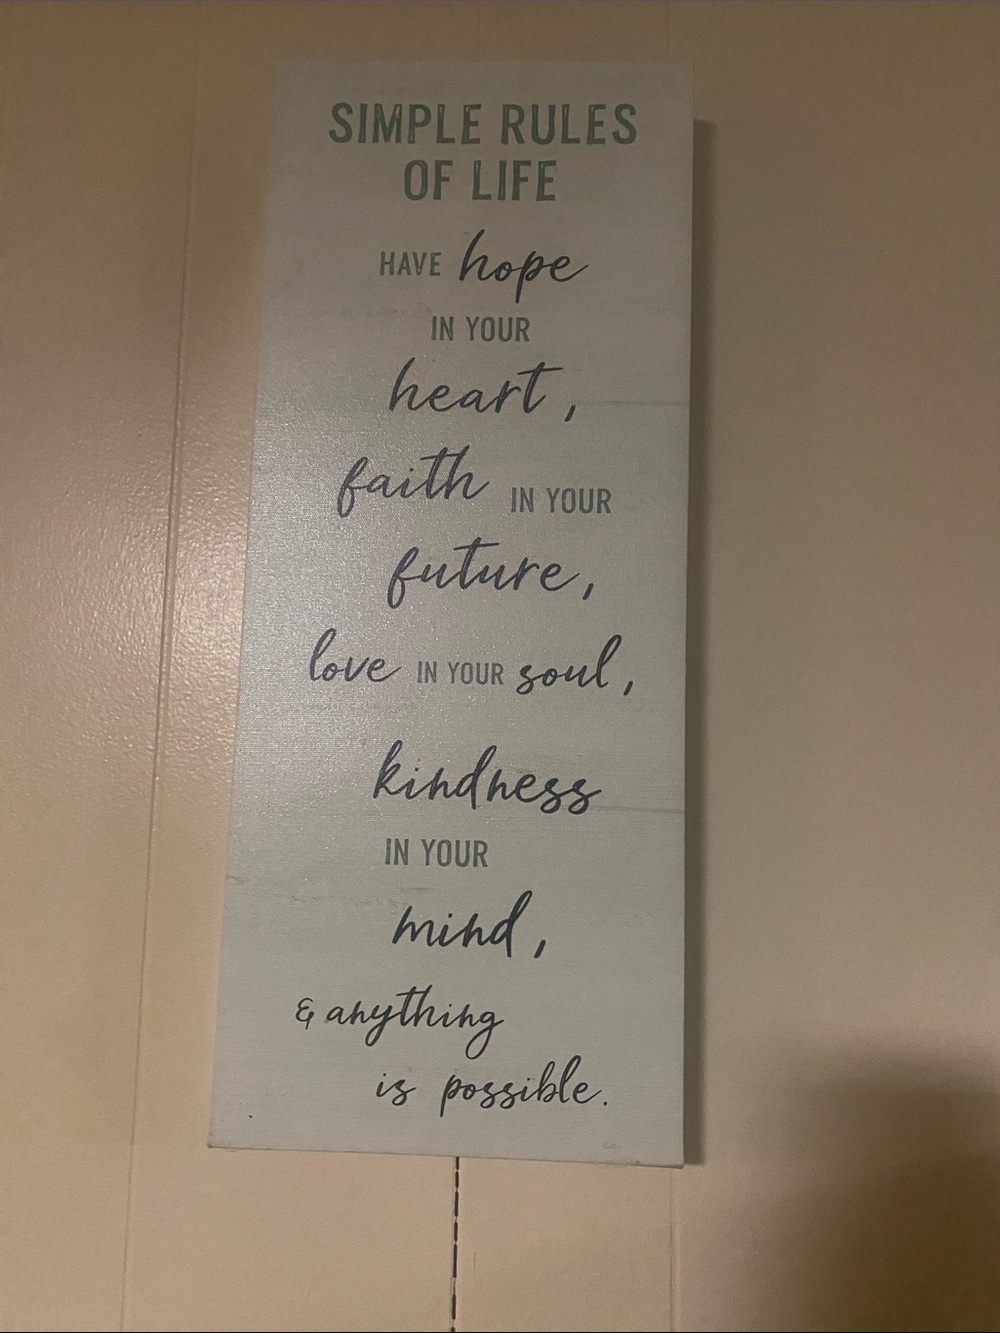 SIMPLE RULES
OF LIFE
HAVE hope
IN YOUR
heart,
faith IN YOUR
future,
love IN YOUR soul,
kindness
IN YOUR
mind,
& anything
is possible.